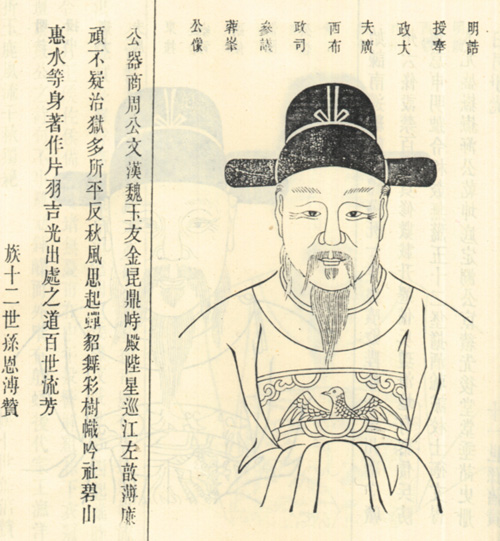 明誥
授奉
政大
夫廣
西布
政司
叅議
峯
公像
公器商周公文漢魏玉友金昆鼎峙殿陛星巡江左敦薄廉
頑不疑治獄多所平反秋風思起蟬貂舞彩樹幟吟社碧山
惠水等身著作片羽吉光出處之道百世流芳
族十二世孫恩溥贊